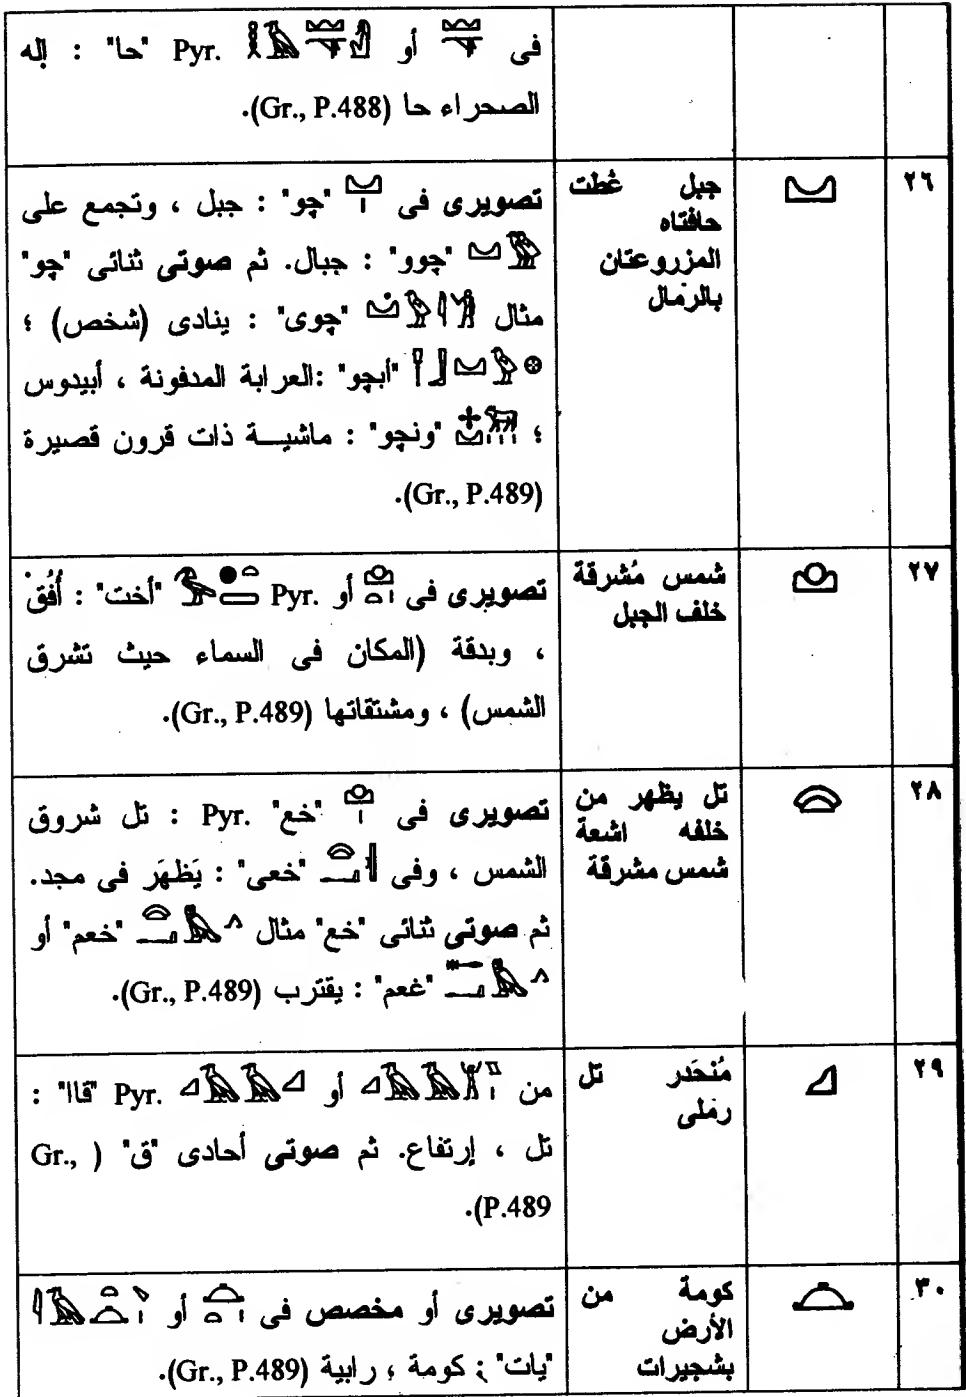 فى 𓈊 أو Pyr. "حا" : إله
الصحراء حا (Gr., P.488).
٢٦
جبل غُطت
حافتاه
المزروعتان
بالرمال
تصويرى فى "چو" : جبل ، وتجمع على
"چوو" : جبال. ثم صوتى ثنائى "چو"
مثال "چوى" : ينادى (شخص) ؛
"أبچو" :العرابة المدفونة ، أبيدوس
؛ "ونچو" : ماشيـــة ذات قرون قصيرة
(Gr., P.489).
٢٧
شمس مُشرقة
خلف الجبل
تصويرى فى أو Pyr. "أخت" : أُفُقْ
، وبدقة (المكان فى السماء حيث تشرق
الشمس) ، ومشتقاتها (Gr., P.489).
٢٨
تل يظهر من
خلفه اشعة
شمس مشرقة
تصويرى فى "خع" Pyr. : تل شروق
الشمس ، وفى "خعى" : يَظهَر فى مجد.
ثم صوتى ثنائى "خع" مثال "خعم" أو
"غعم" : يقترب (Gr., P.489).
٢٩
مُنحَدر تل
رملى
من أو Pyr. "قاا" :
تل ، إرتفاع. ثم صوتى أحادى "ق" ( Gr.,
P.489).
٣٠
كومة من
الأرض
بشجيرات
تصويرى أو مخصص فى أو
"يات" ; كومة ، رابية (Gr., P.489).